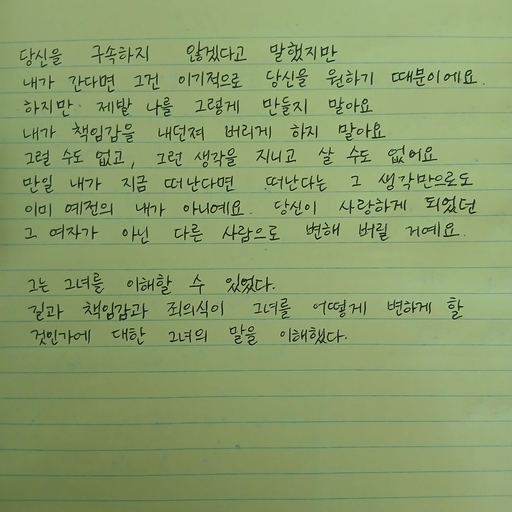 당신을 구속하지 않겠다고 말했지만
내가 간다면 그건 이기적으로 당신을 원하기 때문이에요.
하지만 제발 나를 그렇게 만들지 말아요
내가 책임감을 내던져 버리게 하지 말아요
그럴 수도 없고, 그런 생각을 지니고 살 수도 없어요
만일 내가 지금 떠난다면 떠난다는 그 생각만으로도
이미 예전의 내가 아니예요. 당신이 사랑하게 되었던
그 여자가 아닌 다른 사람으로 변해 버릴 거예요.
그는 그녀를 이해할 수 있었다.
길과 책임감과 죄의식이 그녀를 어떻게 변하게 할
것인가에 대한 그녀의 말을 이해했다.